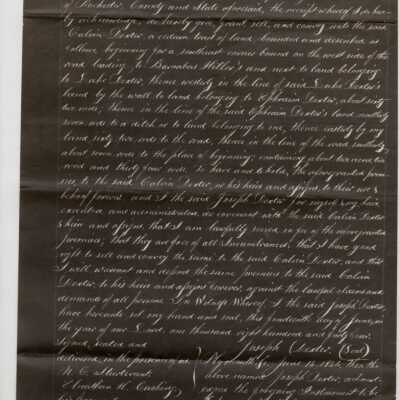 of Rochester, County and State aforesaid, the receipt whereof I do here-
by acknowledge, do hereby give, grant, sell, and convey unto the said
Calvin Dexter, a certain tract of land, bounded and described as
follows: beginning for a southeast corner bound on the west side of the
road leading to Barnabas Hiller's and next to land belonging
to Luke Dexter, thence westerly in the line of said Luke Dexter's
land by the wall to land belonging to Ephraim Dexter, about sixty
two rods, thence in the line of the said Ephraim Dexter's land, northerly
seven rods to a ditch in to land belonging to me, thence easterly by my
land sixty two rods to the road, thence in the line of the road southerly
about seven rods to the place of beginning; containing about two acres two
rood and thirty four rods. To have and to hold, the aforegranted premi-
ses, to the said Calvin Dexter, to his heirs and assigns, to their use &
behoof forever. And I the said Joseph Dexter for myself my heirs
executors and administrators, do covenant with the said Calvin Dexter
& heirs and assigns, that I am lawfully seized in fee of the aforegranted
premises; that they are free of all Incumbrances; that I have good
right to sell and convey the same to the said Calvin Dexter; and that
I will warrant and defend the same premises to the said Calvin
Dexter, to his heirs and assigns forever, against the lawful claims and
demands of all persons. In Witness Whereof, I the said Joseph Dexter,
have hereunto set my hand and seal, this fourteenth day of June, in
the year of our Lord, one thousand eight hundred and forty four.
Signed, sealed and Joseph Dexter, (Seal)
delivered, in the presence of us Plymouth ss. June 14. 1844. Then the
N. C. Sturtevant above named Joseph Dexter, acknowl-
Jonathan H. Cushing edged the foregoing Instrument to be